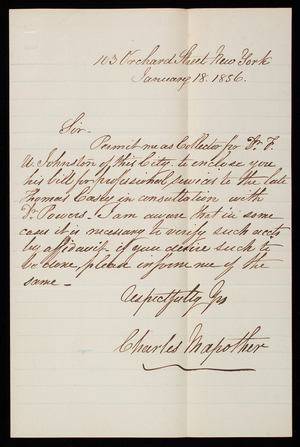 103 Orchard Street New York
January 18. 1856.
Sir.
Permit me as Collector for Dr. F.
U. Johnston of this City. to enclose you
his bill for professional services to the late
Thomas Casey in consultation with
Dr. Powers. I am aware that in some
cases it is necessary to verify such accts
by affidavit. if you desire such to
be done, please inform me of the
same -
Respectfully Yrs
Charles Mapother